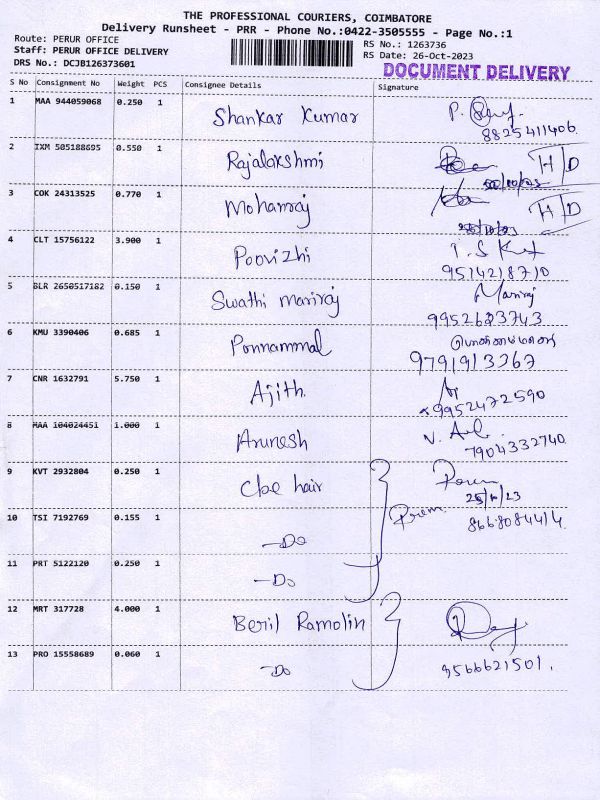 THE PROFESSIONAL COURIERS, COIMBATORE
Delivery Runsheet - PRR - Phone No.:0422-3505555 - Page No.:1
Route: PERUR OFFICE
RS No.: 1263736
Staff: PERUR OFFICE DELIVERY
RS Date: 26-Oct-2023
DRS No.: DCJB126373601
DOCUMENT DELIVERY
S No Consignment No Weight PCS Consignee Details Signature
1 MAA 944059068 0.250 1 Shankar Kumar
8825411406
2 IXM 505188695 0.550 1 Rajalakshmi H/D
3 COK 24313525 0.770 1 Mohanraj H/D
4 CLT 15756122 3.900 1 Poovizhi
9514218710
5 BLR 2650517182 0.150 1 Swathi mariraj Mariraj
9952623743
6 KMU 3390406 0.685 1 Ponnammal
9791913367
7 CNR 1632791 5.750 1 Ajith
9952472590
8 MAA 104024451 1.000 1 Arunesh
7904332740
9 KVT 2932804 0.250 1 Cbe hair
Prem
10 TSI 7192769 0.155 1 -Do 8668084414
11 PRT 5122120 0.250 1 -Do
12 MRT 317728 4.000 1 Beril Ramolin
13 PRO 15558689 0.060 1 -Do 9566621501.